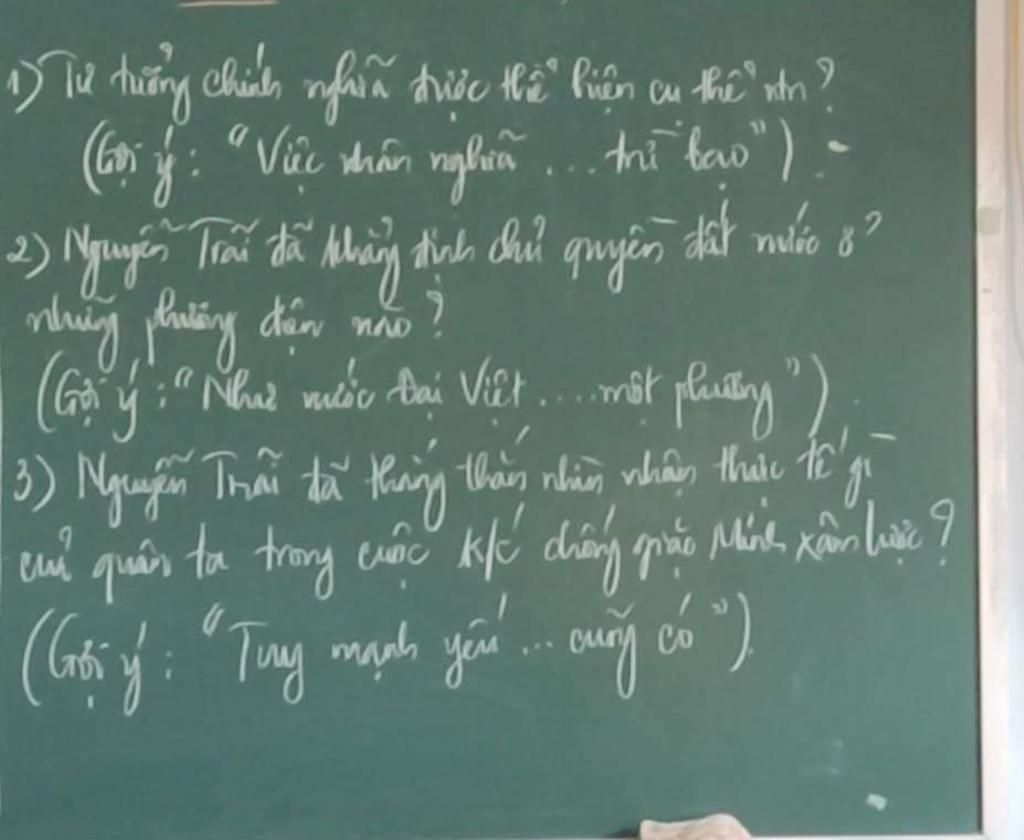 1) Tư tưởng chính nghĩa được thể hiện cụ thể ntn?
(Gợi ý: "Việc nhân nghĩa ... trừ bạo")
2) Nguyễn Trãi đã khẳng định chủ quyền đất nước ở
những phương diện nào?
(Gợi ý: "Như nước Đại Việt ....một phương")
3) Nguyễn Trãi đã thẳng thắn nhìn nhận thực tế gì
của quân ta trong cuộc k/c chống giặc Minh xâm lược?
(Gợi ý: "Tuy mạnh yếu ... cũng có").